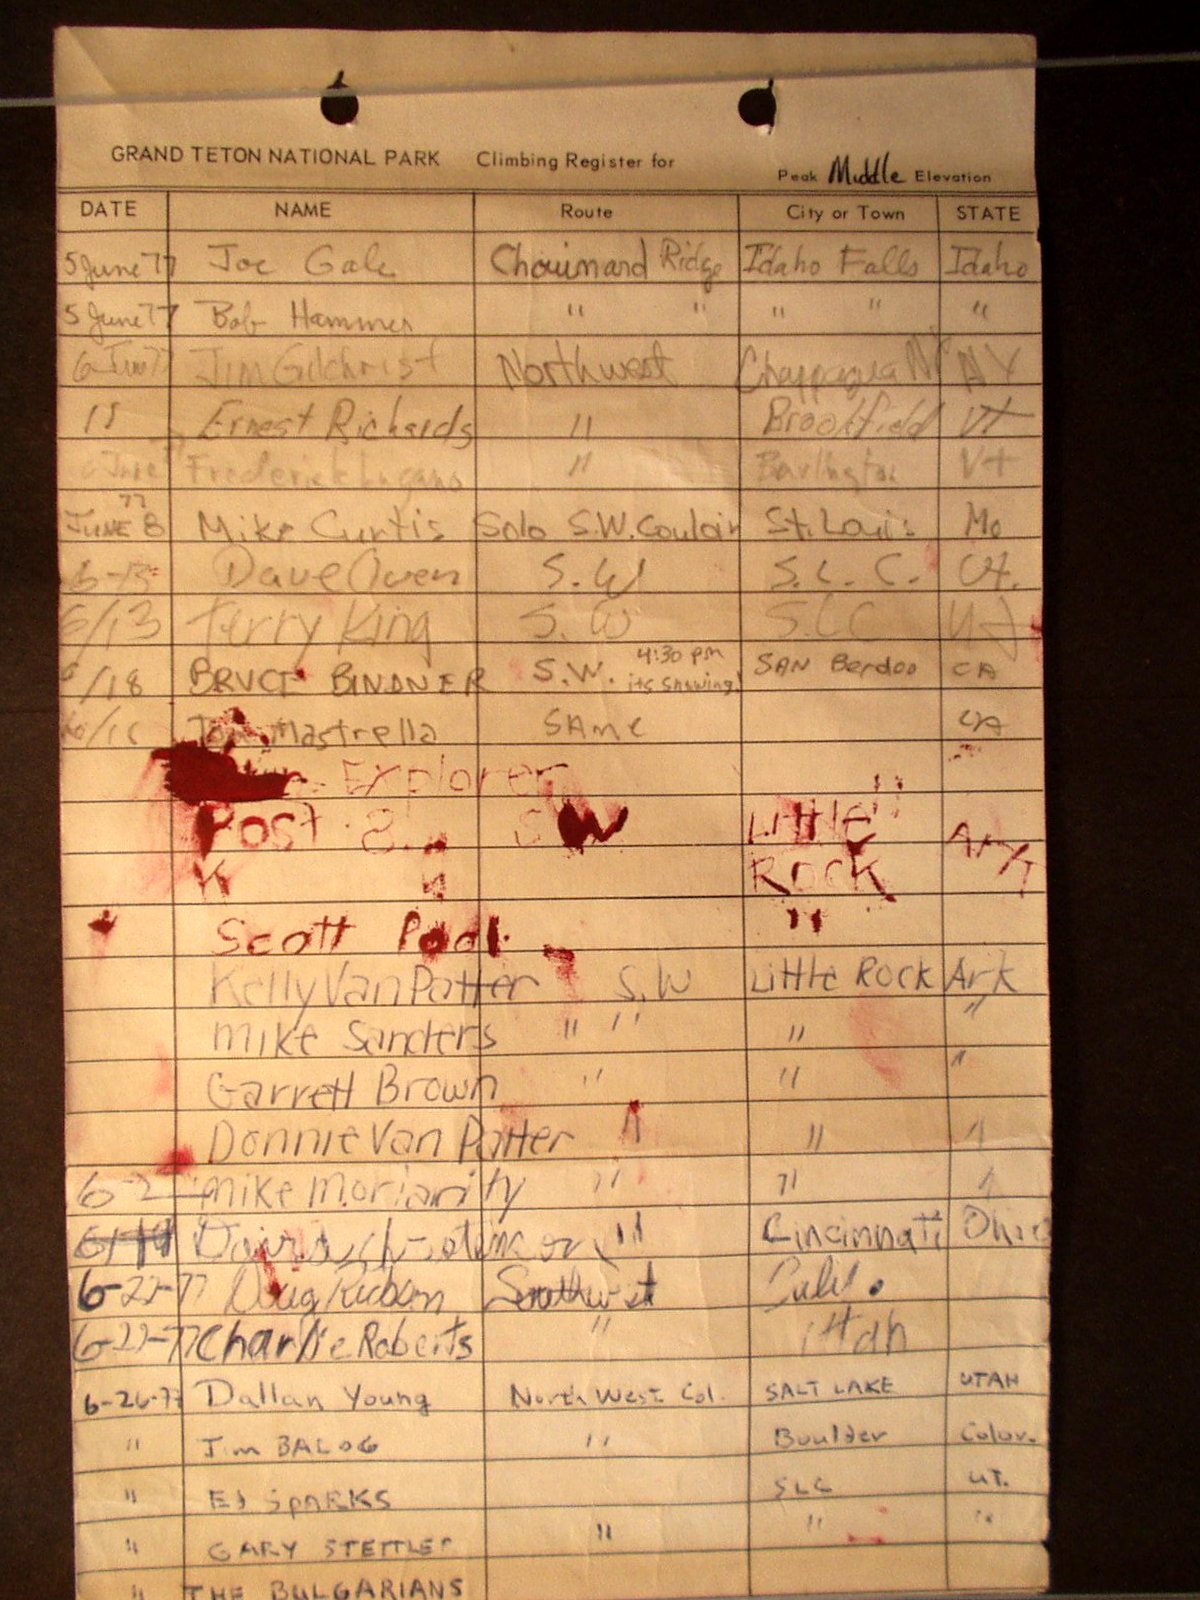 GRAND TETON NATIONAL PARK Climbing Register for Peak Middle Elevation
DATE NAME Route City or Town STATE
5 June 77 Joe Gale Chouinard Ridge Idaho Falls Idaho
5 June 77 Bob Hammer " " " " "
6 Jun 77 Jim Gilchrist Northwest Chappaqua NY NY
" Ernest Richards " Brookfield Vt
6 June 77 Frederick " Burlington Vt
77
JUNE 8 Mike Curtis Solo S.W. Couloir St. Louis Mo
6-13 Dave Owen S.W S.L.C. Ut.
6/13 Terry King S.W SLC Ut
6/18 BRUCE BINDNER S.W. 4:30 pm its snowing! SAN Berdoo CA
Mastrella SAME CA
Explorer
Post SW Little Ark
Rock
Scott "
Kelly Van Patter S.W Little Rock Ark
Mike Sanders " " " "
Garrett Brown " " "
Donnie Van Patter " " "
Mike Moriarity " " "
" Cincinnati Ohio
6-22-77 Doug Southwest Calif.
6-22-77 Charlie Roberts " Utah
6-26-77 Dallan Young North West Col. SALT LAKE UTAH
" Jim BALOG " Boulder Color.
" Ed SPARKS SLC UT.
" GARY STETTLER " " "
" THE BULGARIANS